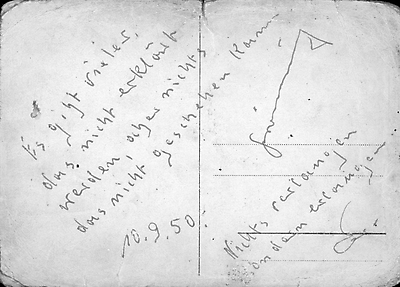 Es gibt vieles,
das nicht erklärt
werden, aber nichts
das nicht geschehen kann.
10.9.50
Nichts verlangen
sondern erlangen.